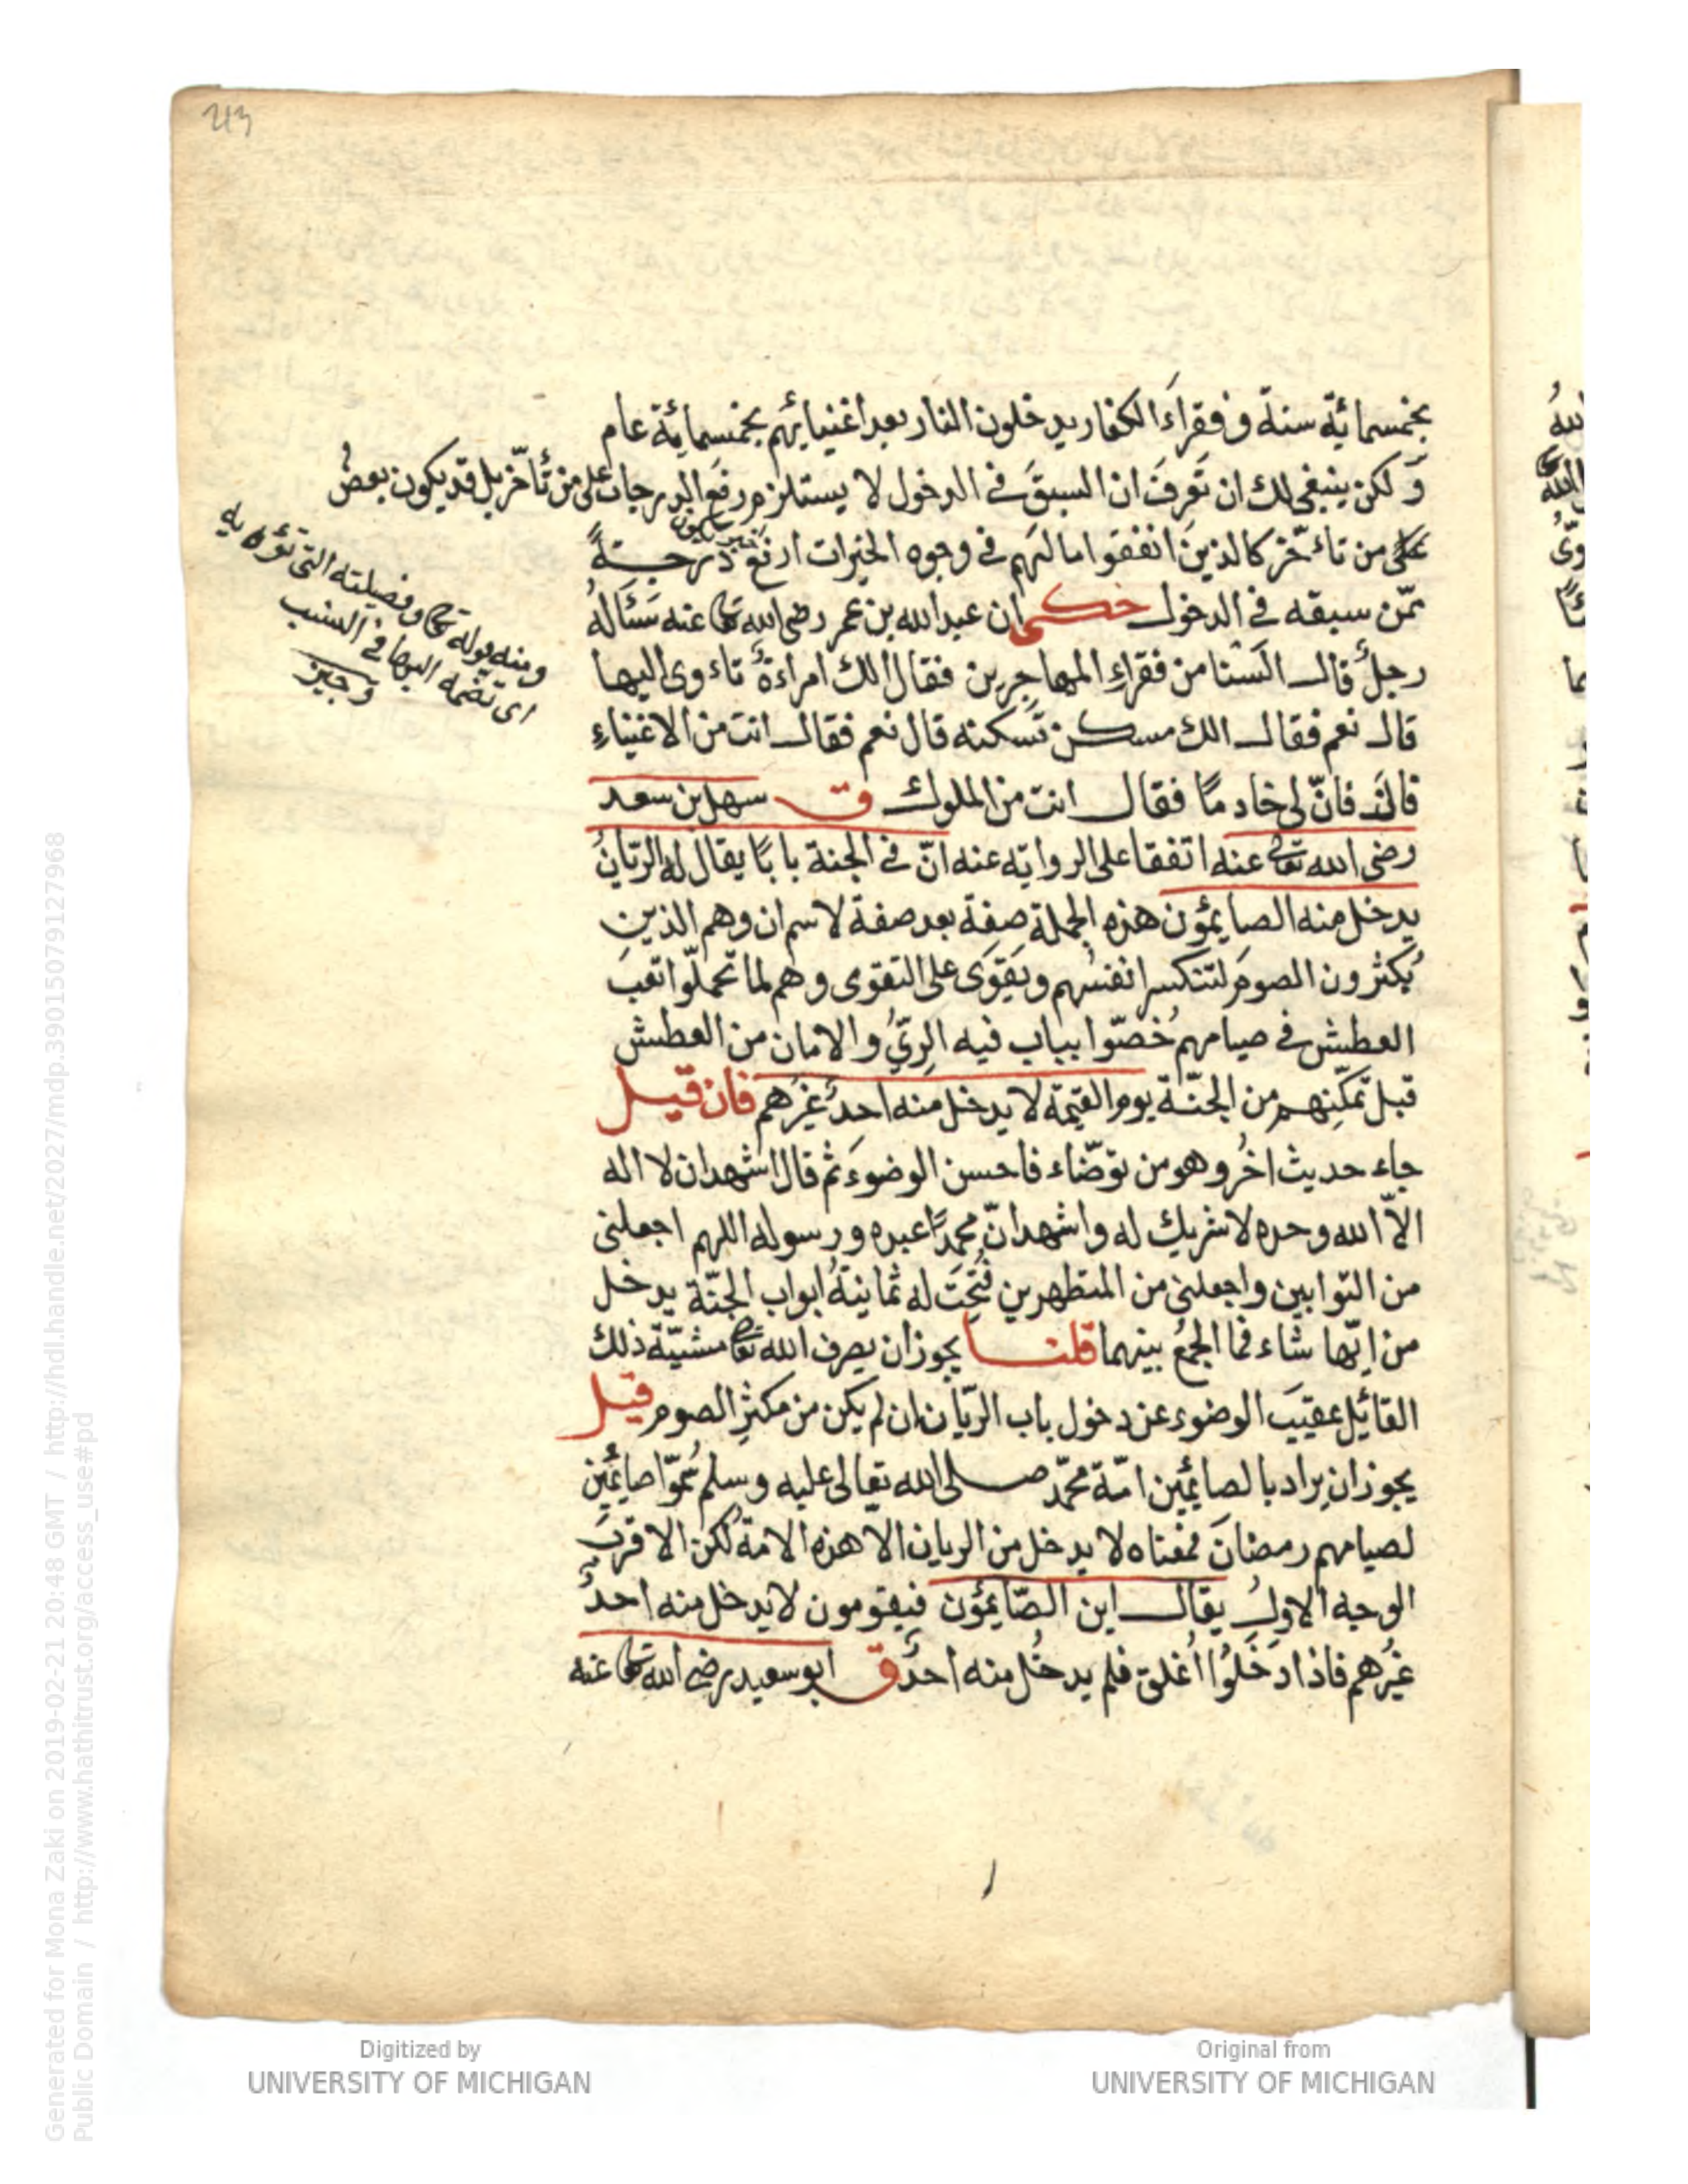 213
بخمسمائة سنة وفقراء الكفار يدخلون النار بعد اغنيائهم بخمسمائة عام
ولكن ينبغى لك ان تعرف ان السبق فى الدخول لا يستلزم رفع الدرجات على من تأخّر بل قد يكون بعض
على من تاءخّر كالذين انفقوا امالهم فى وجوه الخيرات ارفع درجة
ممّن سبقه فى الدخول حكى ان عبد الله بن عمر رضى الله تعا عنه سئاله
رجلٌ قال السنا من فقراءِ المهاجرين فقال الك امراءةٌ تاءوى اليها
قال نعم فقال الك مسكن تسكنه قال نعم فقال انت من الاغنياءِ
قال فانّ لى خادمًا فقال انت من الملوك ق سهل بن سعد
رضى الله تعا عنه اتفقا على الرواية عنه انّ فى الجنة بابًا يقال له الرّيانُ
يدخل منه الصايمؤن هذه الجملة صفة بعد صفة لاسم ان وهم الذين
يُكثرون الصومَ لتنكسر انفسُهم ويَقِوَى على التقوى وهم لما تحملّوا تعبَ
العطش فى صيامهم خُصّوا بباب فيه الرِيُّ والامان من العطش
قبل تمكّنِهم من الجنّة يوم القيمة لا يدخل منه احدٌ غيُرهم فان قيل
جاء حديث اخرُ وهو من توضّاء فاحسن الوضوءَ ثم قال اشهد ان لا اله
الاّ الله وحده لا شريك له واشهد انّ محمدًا عبده ورسوله اللهم اجعلنى
من التوابين واجعلنى من المتطهرين فُتِحَت له ثمانيةُ ابواب الجنّة يدخل
من ايّها شاء فما الجمعُ بينهما قلنا يجوز ان يصرف الله تعا مشيّة ذلك
القائل عقيبَ الوضوء عن دخول باب الرّيان ان لم يكن من مكثرِ الصوم قيل
يجوز ان يراد بالصائمين امّة محمّد صلى الله تعالى عليه وسلم سُمّوا صائمين
لصيامهم رمضانَ فمعناه لا يدخل من الريان الا هذه الامة لكن الاقربَ
الوجه الاولُ يقال اين الصّايمؤن فيقومون لا يدخل منه احدٌ
غيُرهم فاذا دَخَلُوا اُغلق فلم يدخُل منه احدٌ ق ابو سعيد رضى الله تعا عنه
ومنه قوله تعا وفصيلته التى تؤويه
اى تضمه اليها فى النسب
وجيز
Generated for Mona Zaki on 2019-02-21 20:48 GMT / http://hdl.handle.net/2027/mdp.39015079127968
Public Domain / http://www.hathitrust.org/access_use#pd
Digitized by
UNIVERSITY OF MICHIGAN
Original from
UNIVERSITY OF MICHIGAN